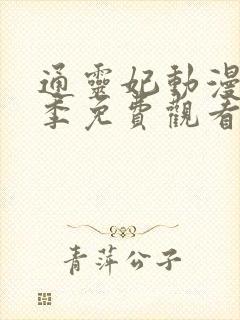 通靈妃動漫
季免費觀看
青萍公子